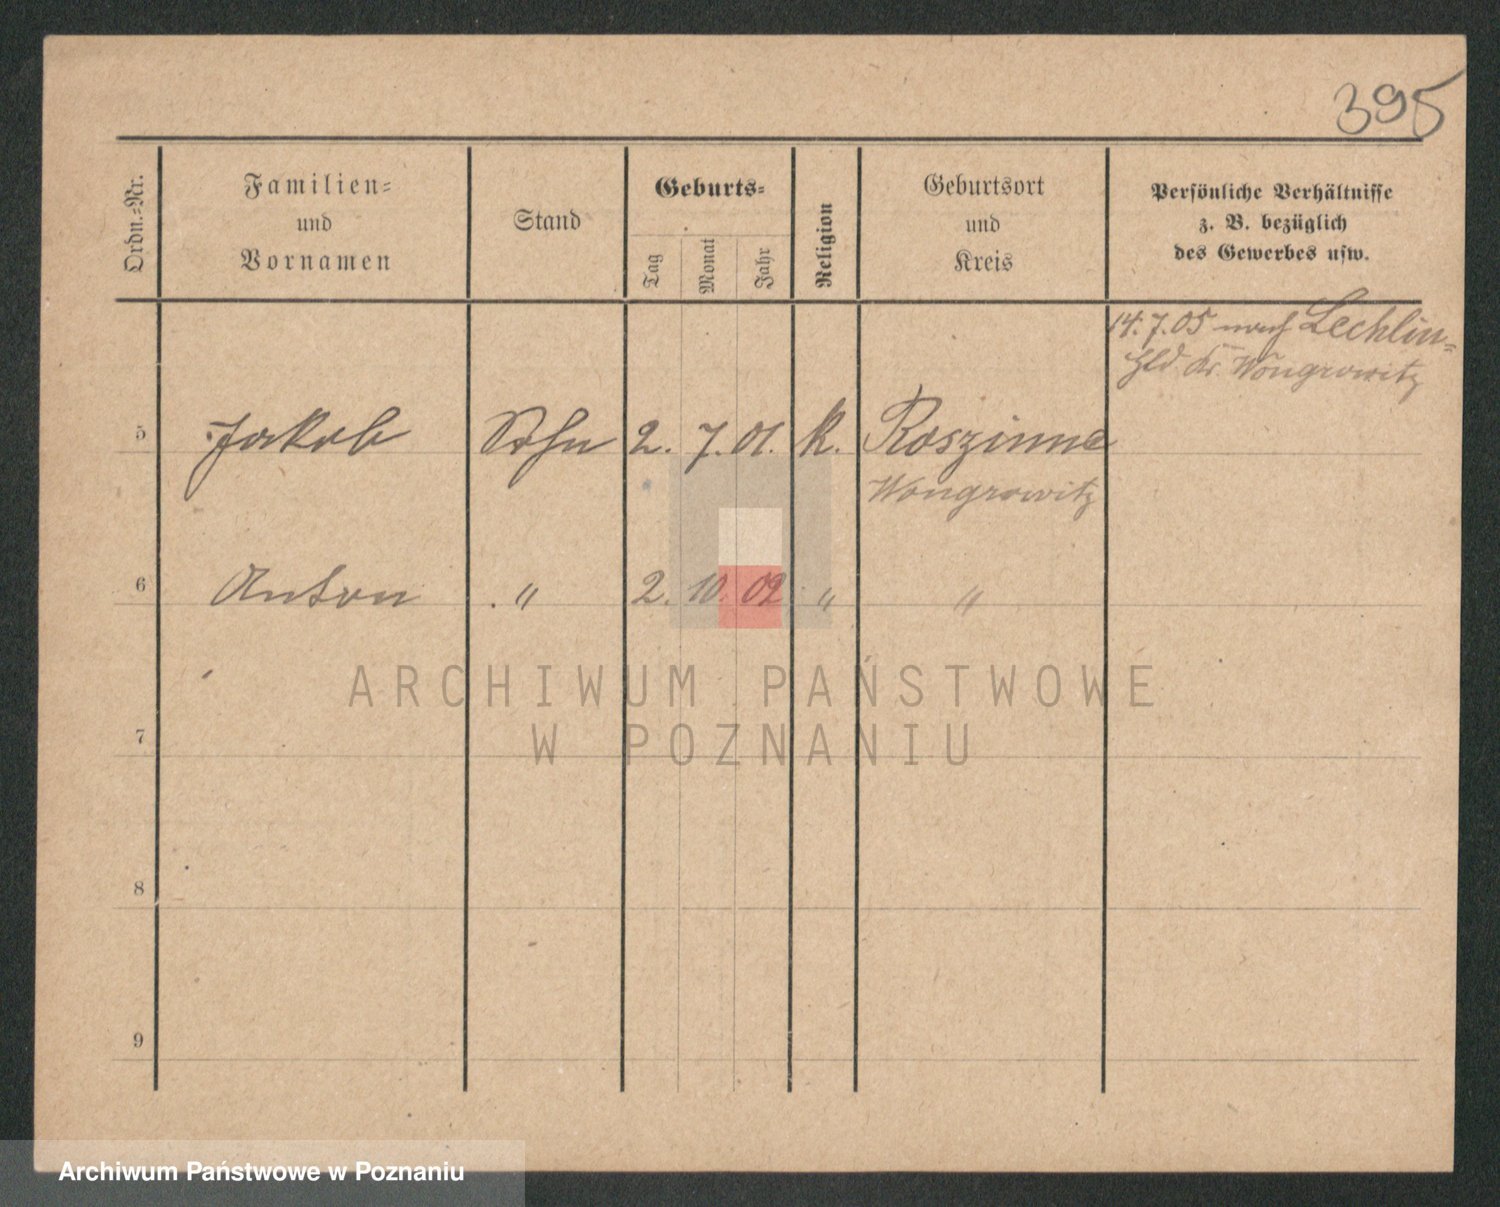 395
Ordn.-Nr.
Familien-
und
Vornamen
Stand
Geburts-
Tag
Monat
Jahr
Religion
Geburtsort
und
Kreis
Persönliche Verhältnisse
z. B. bezüglich
des Gewerbes usw.
14.7.05 nach Lechlin-
Hld. Kr. Wongrowitz
5 Jakob Sohn 2. 7. 01. k. Roszinno
Wongrowitz
6 Anton . " 2. 10. 02 " "
ARCHIWUM PAŃSTWOWE
W POZNANIU
7
8
9
Archiwum Państwowe w Poznaniu